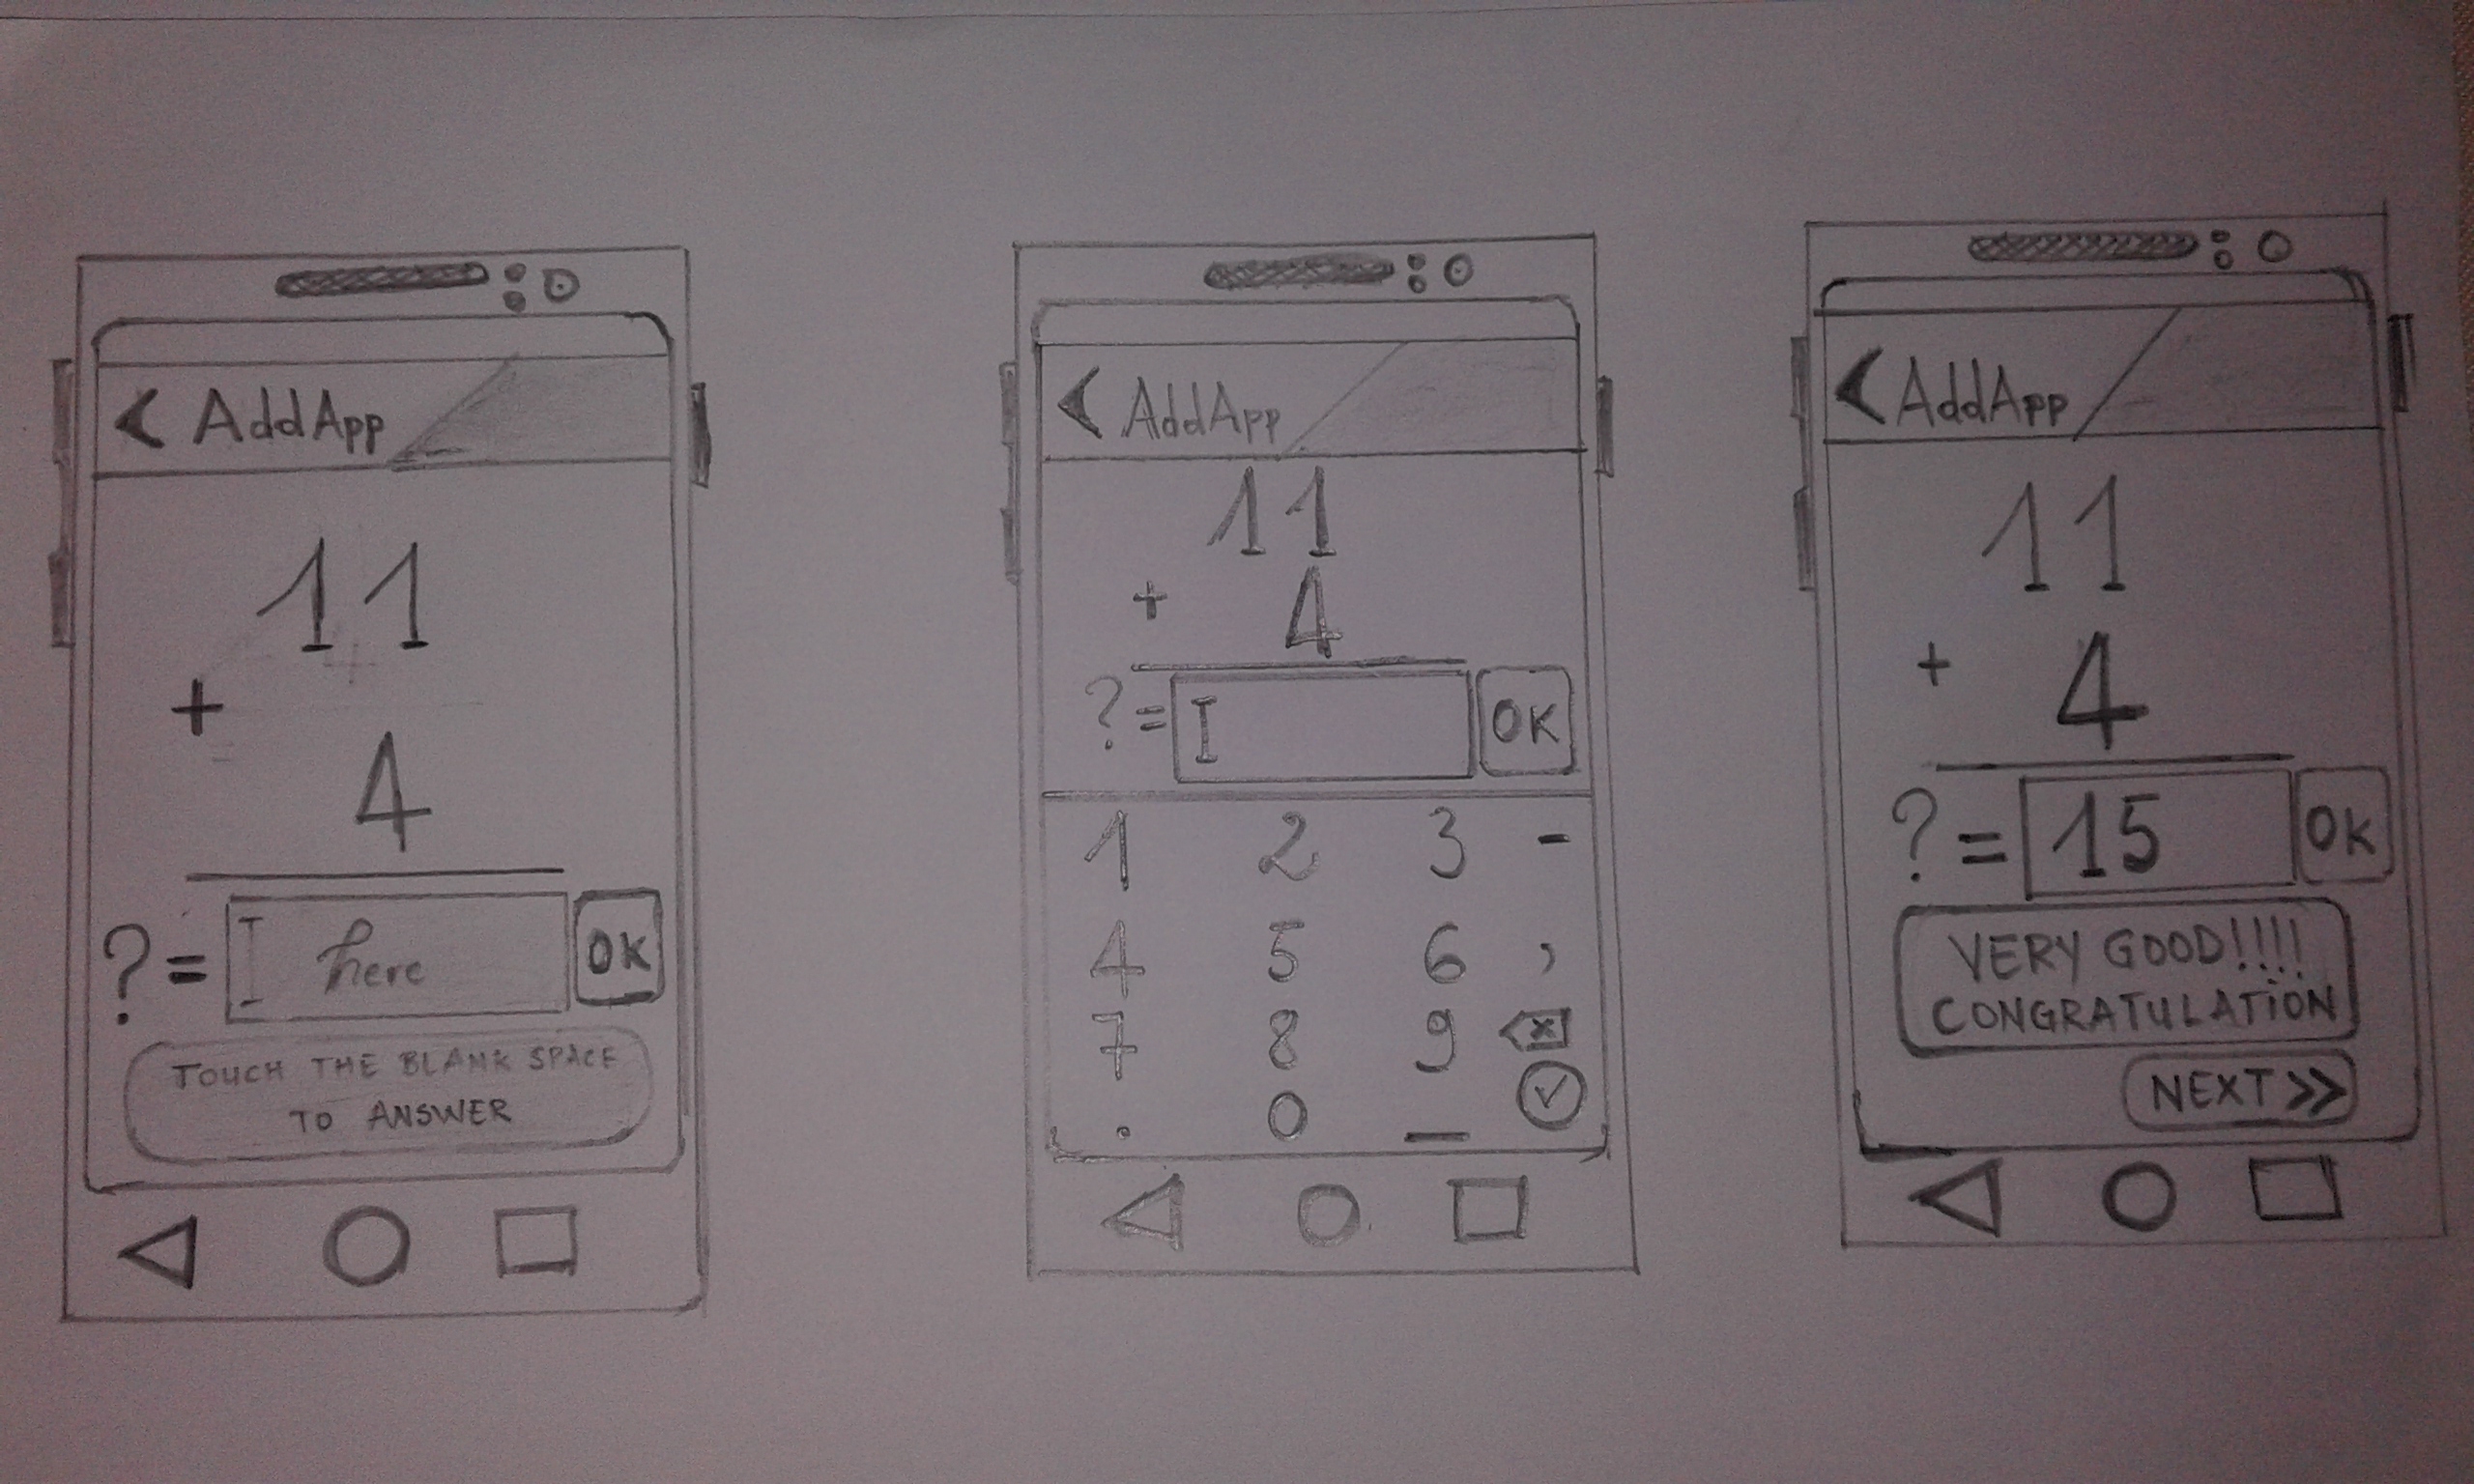 AddApp
11
+
4
?= here OK
TOUCH THE BLANK SPACE
TO ANSWER
AddApp
11
+ 4
?= OK
1 2 3 -
4 5 6 ,
7 8 9
. 0 _
AddApp
11
+ 4
?= 15 OK
VERY GOOD!!!!
CONGRATULATION
NEXT >>